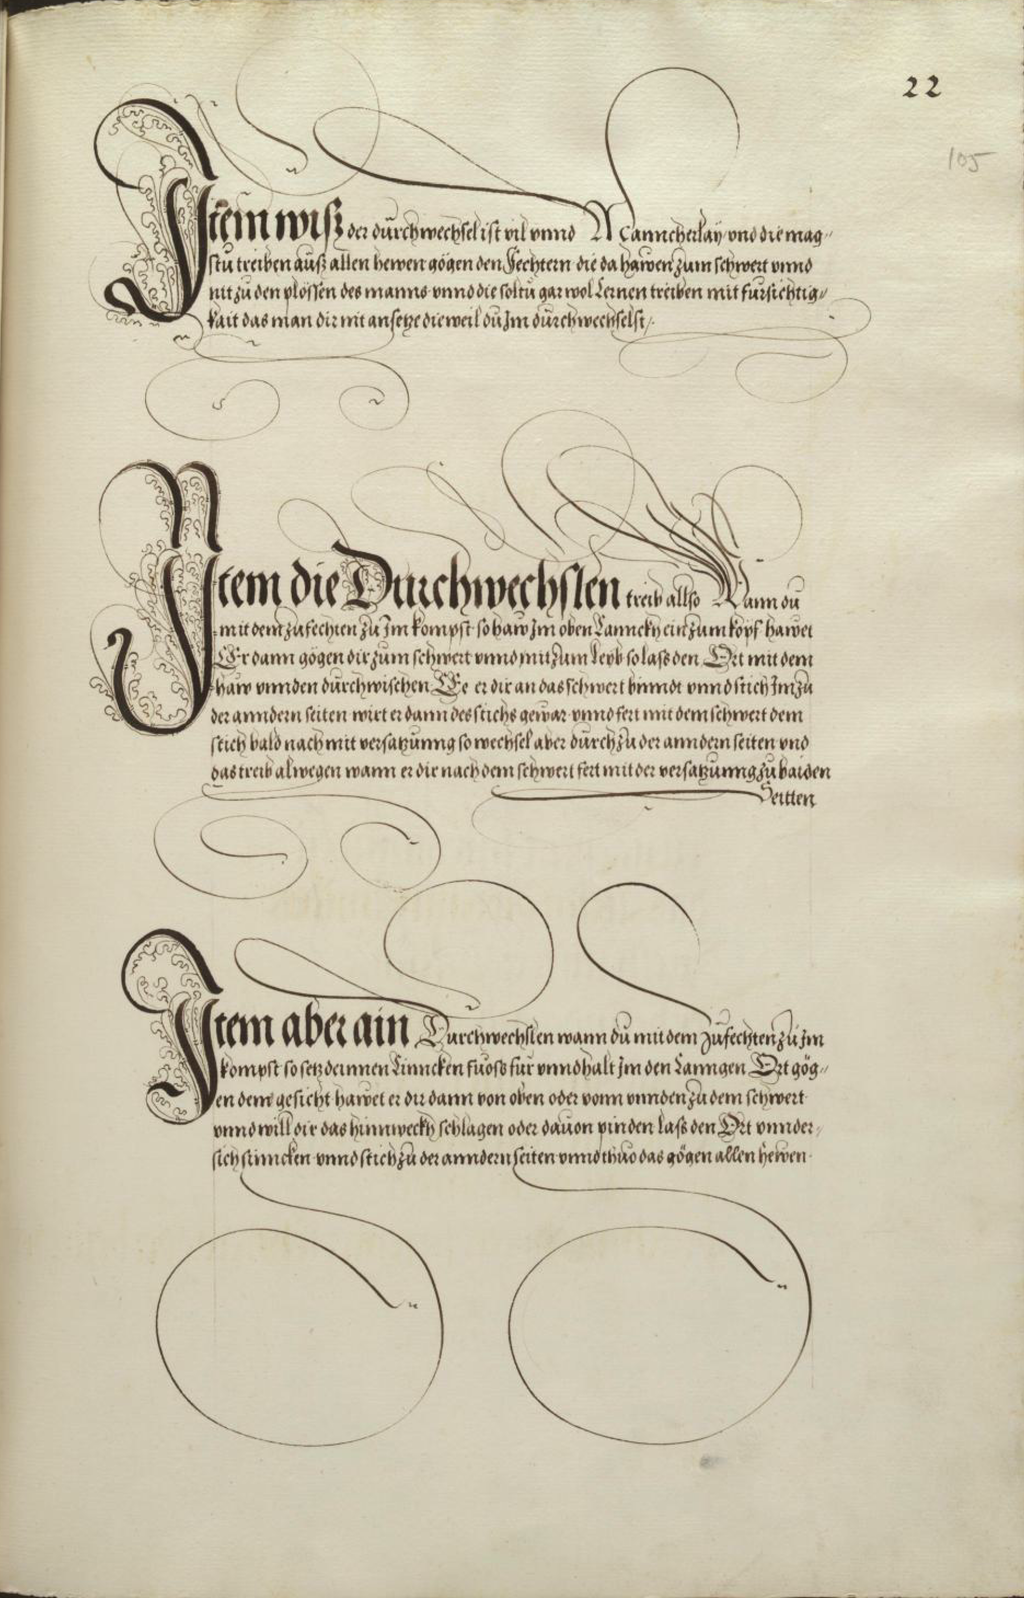 22
105
Item wiß der durchwechsel ist vil vnnd Manncherlay vnd die mag-
stu treiben auß allen hewen gögen den Fechtern die da hawen zum schwert vnnd
nit zu den plössen des manns vnnd die soltu gar wol Lernen treiben mit fursichtig-
kait das man dir nit ansetze dieweil du Im durchwechselst /.
Item die Durchwechslen treib allso Wann du
mit dem zufechten zu Im kompst so haw Im oben Lanncklycin zum kopf hawet
Er dann gögen dir zum schwert vnnd nit zum leyb so lass den Ort mit dem
haw vnnden durchwischen Ee er dir an das schwert binndt vnnd stich Im zu
der anndern seiten wirt er dann des stichs gewar vnnd fert mit dem schwert dem
stich bald nach mit versatzunng so wechsel aber durch zu der anndern seiten vnd
das treib alwegen wann er dir nach dem schwert fert mit der versatzunng zu baiden
Seitten
Item aber ain Durchwechslen wann du mit dem zufechten zu Im
kompst so setz deinnen Linncken fuoss fur vnnd halt Im den Lanngen Ort gög-
en dem gesicht hawet er dir dann von oben oder vonn vnnden zu dem schwert
vnnd will dir das hinnweckh schlagen oder dauon pinden lass den Ort vnnder-
sich sinncken vnnd stich zu der anndern seiten vnnd thuo das gögen allen hewen.